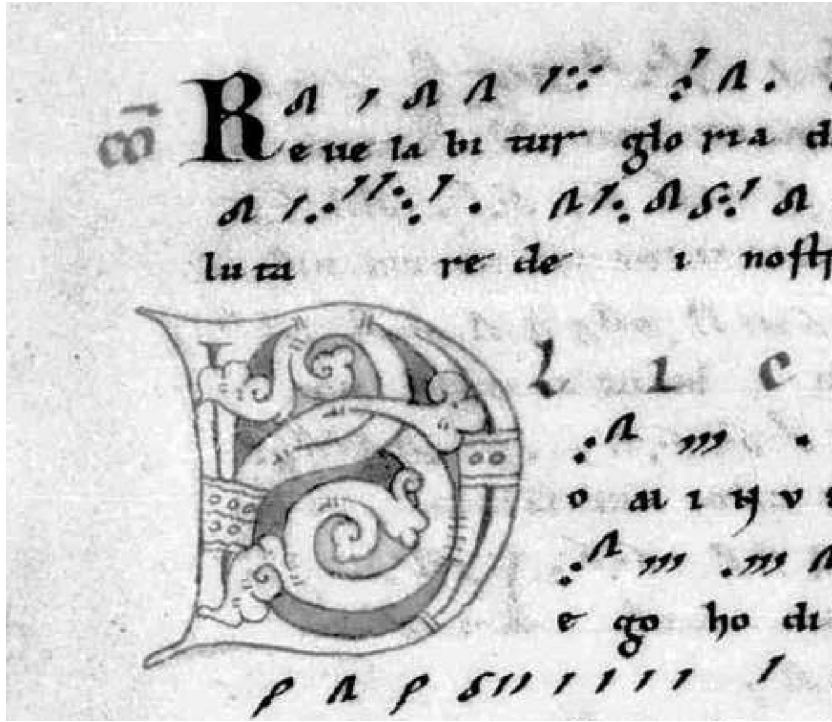 co R e ue la bi tur glo ria d
lu ta re de i nostr
L I C
D o mi nus
e go ho di